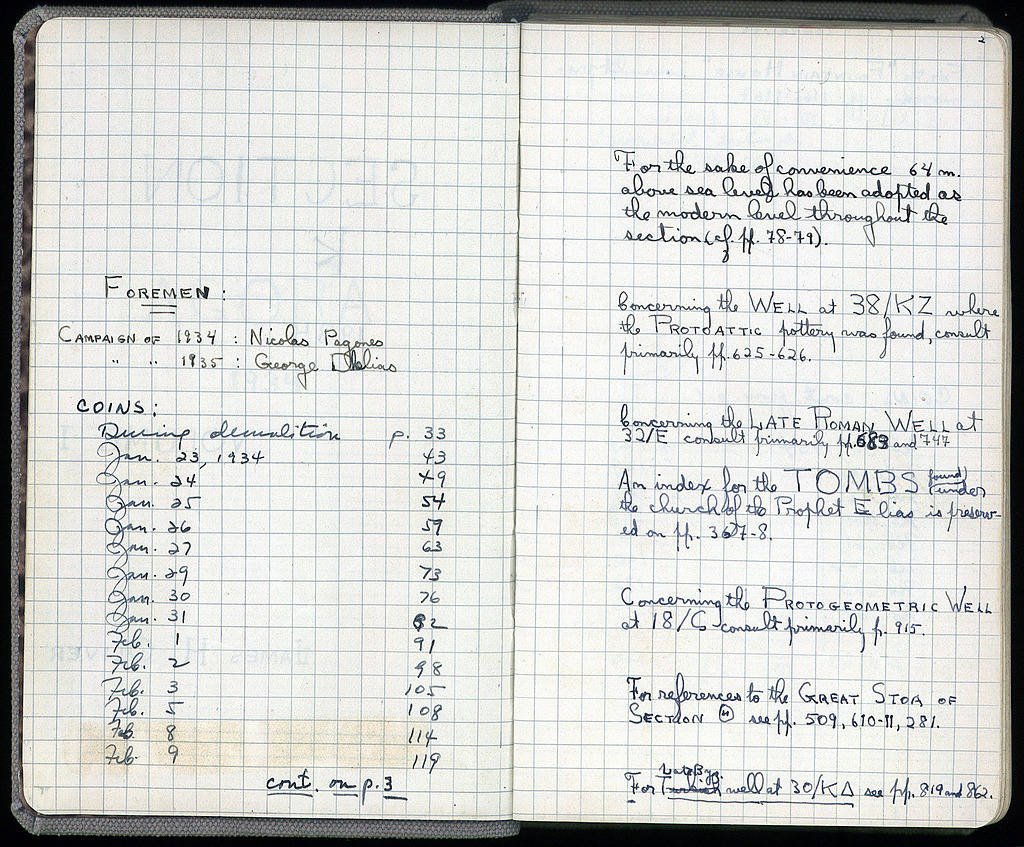 FOREMEN:
CAMPAIGN OF 1934 : Nicolas Pagones
" " 1935 : George Delias
COINS:
During demolition p. 33
Jan. 23, 1934 43
Jan. 24 49
Jan. 25 54
Jan. 26 59
Jan. 27 63
Jan. 29 73
Jan. 30 76
Jan. 31 82
Feb. 1 91
Feb. 2 98
Feb. 3 105
Feb. 5 108
Feb 8 114
Feb. 9 119
cont. on p. 3
2
For the sake of convenience 64 m.
above sea level has been adopted as
the modern level throughout the
section (cf. pp. 78-79).
Concerning the WELL at 38/ΚΖ where
the PROTOATTIC pottery was found, consult
primarily pp. 625-626.
Concerning the LATE ROMAN WELL at
32/Ε consult primarily pp. 683 and 747
An index for the TOMBS (found) under
the church of the Prophet Elias is preserv-
ed on pp. 367-8.
Concerning the PROTOGEOMETRIC WELL
at 18/ consult primarily p. 915.
For references to the GREAT STOA OF
SECTION Θ see pp. 509, 610-11, 281.
Late Byz.
For Turkish well at 30/ΚΔ see pp. 819 and 862.